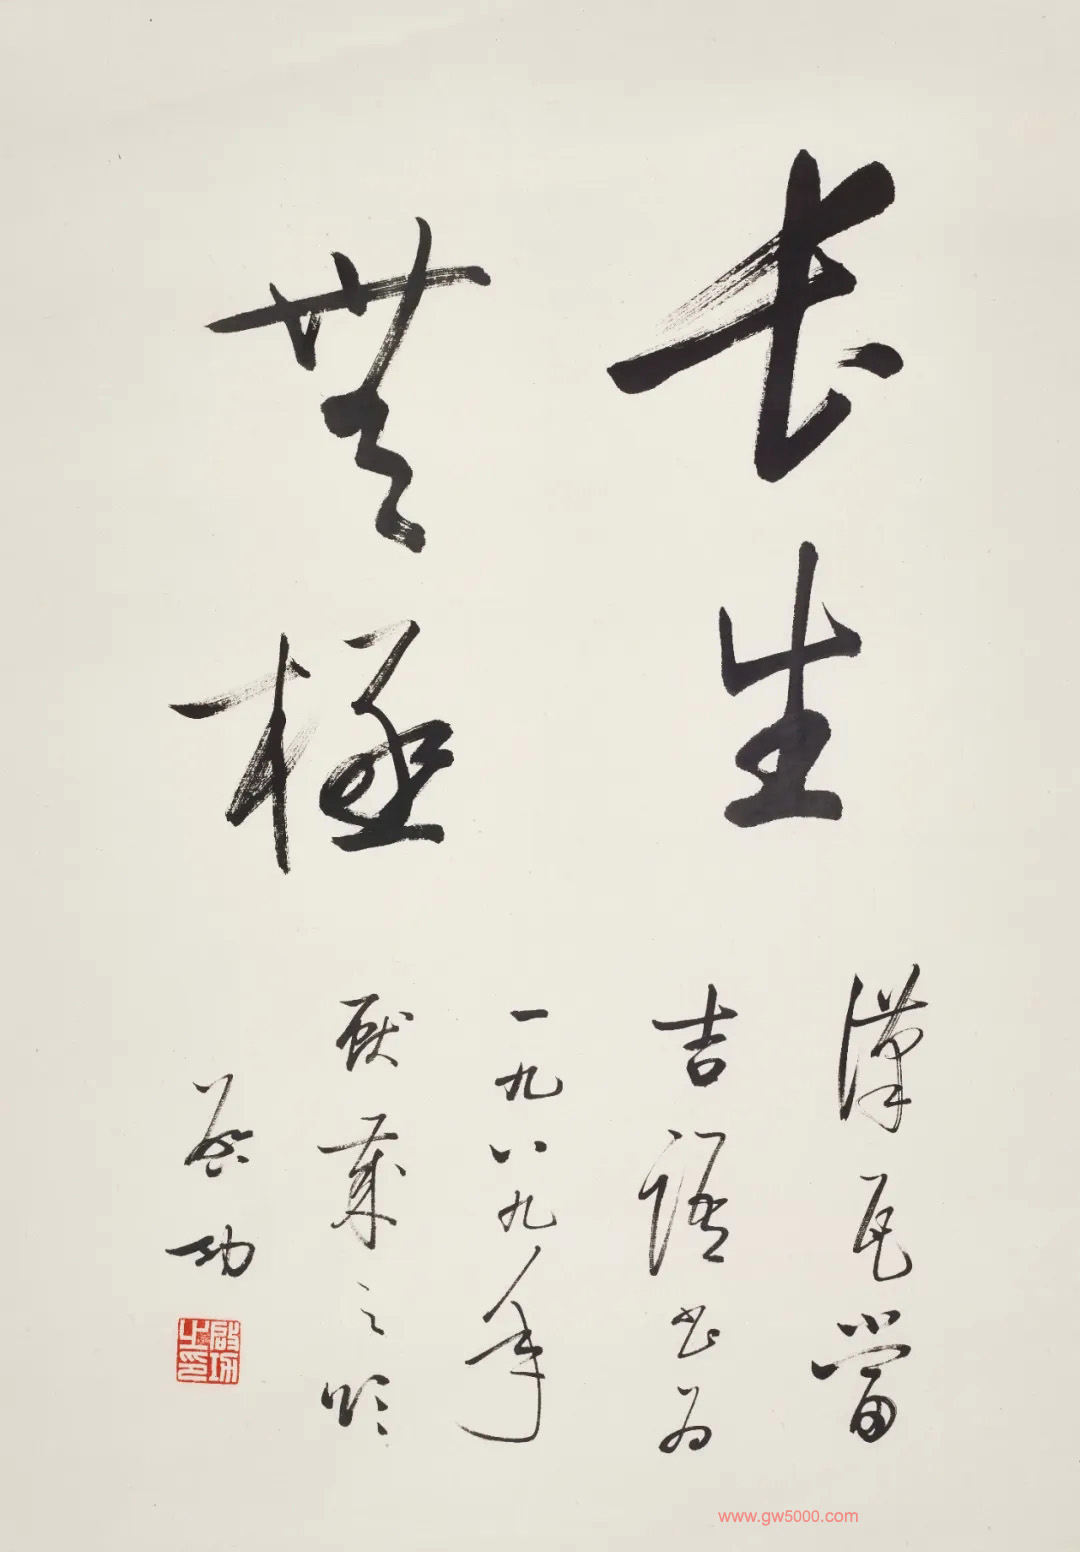 長生
無極
漢瓦當
吉語書為
一九八九年
獻歲之頌
啟功
啟功之印
www.gw5000.com